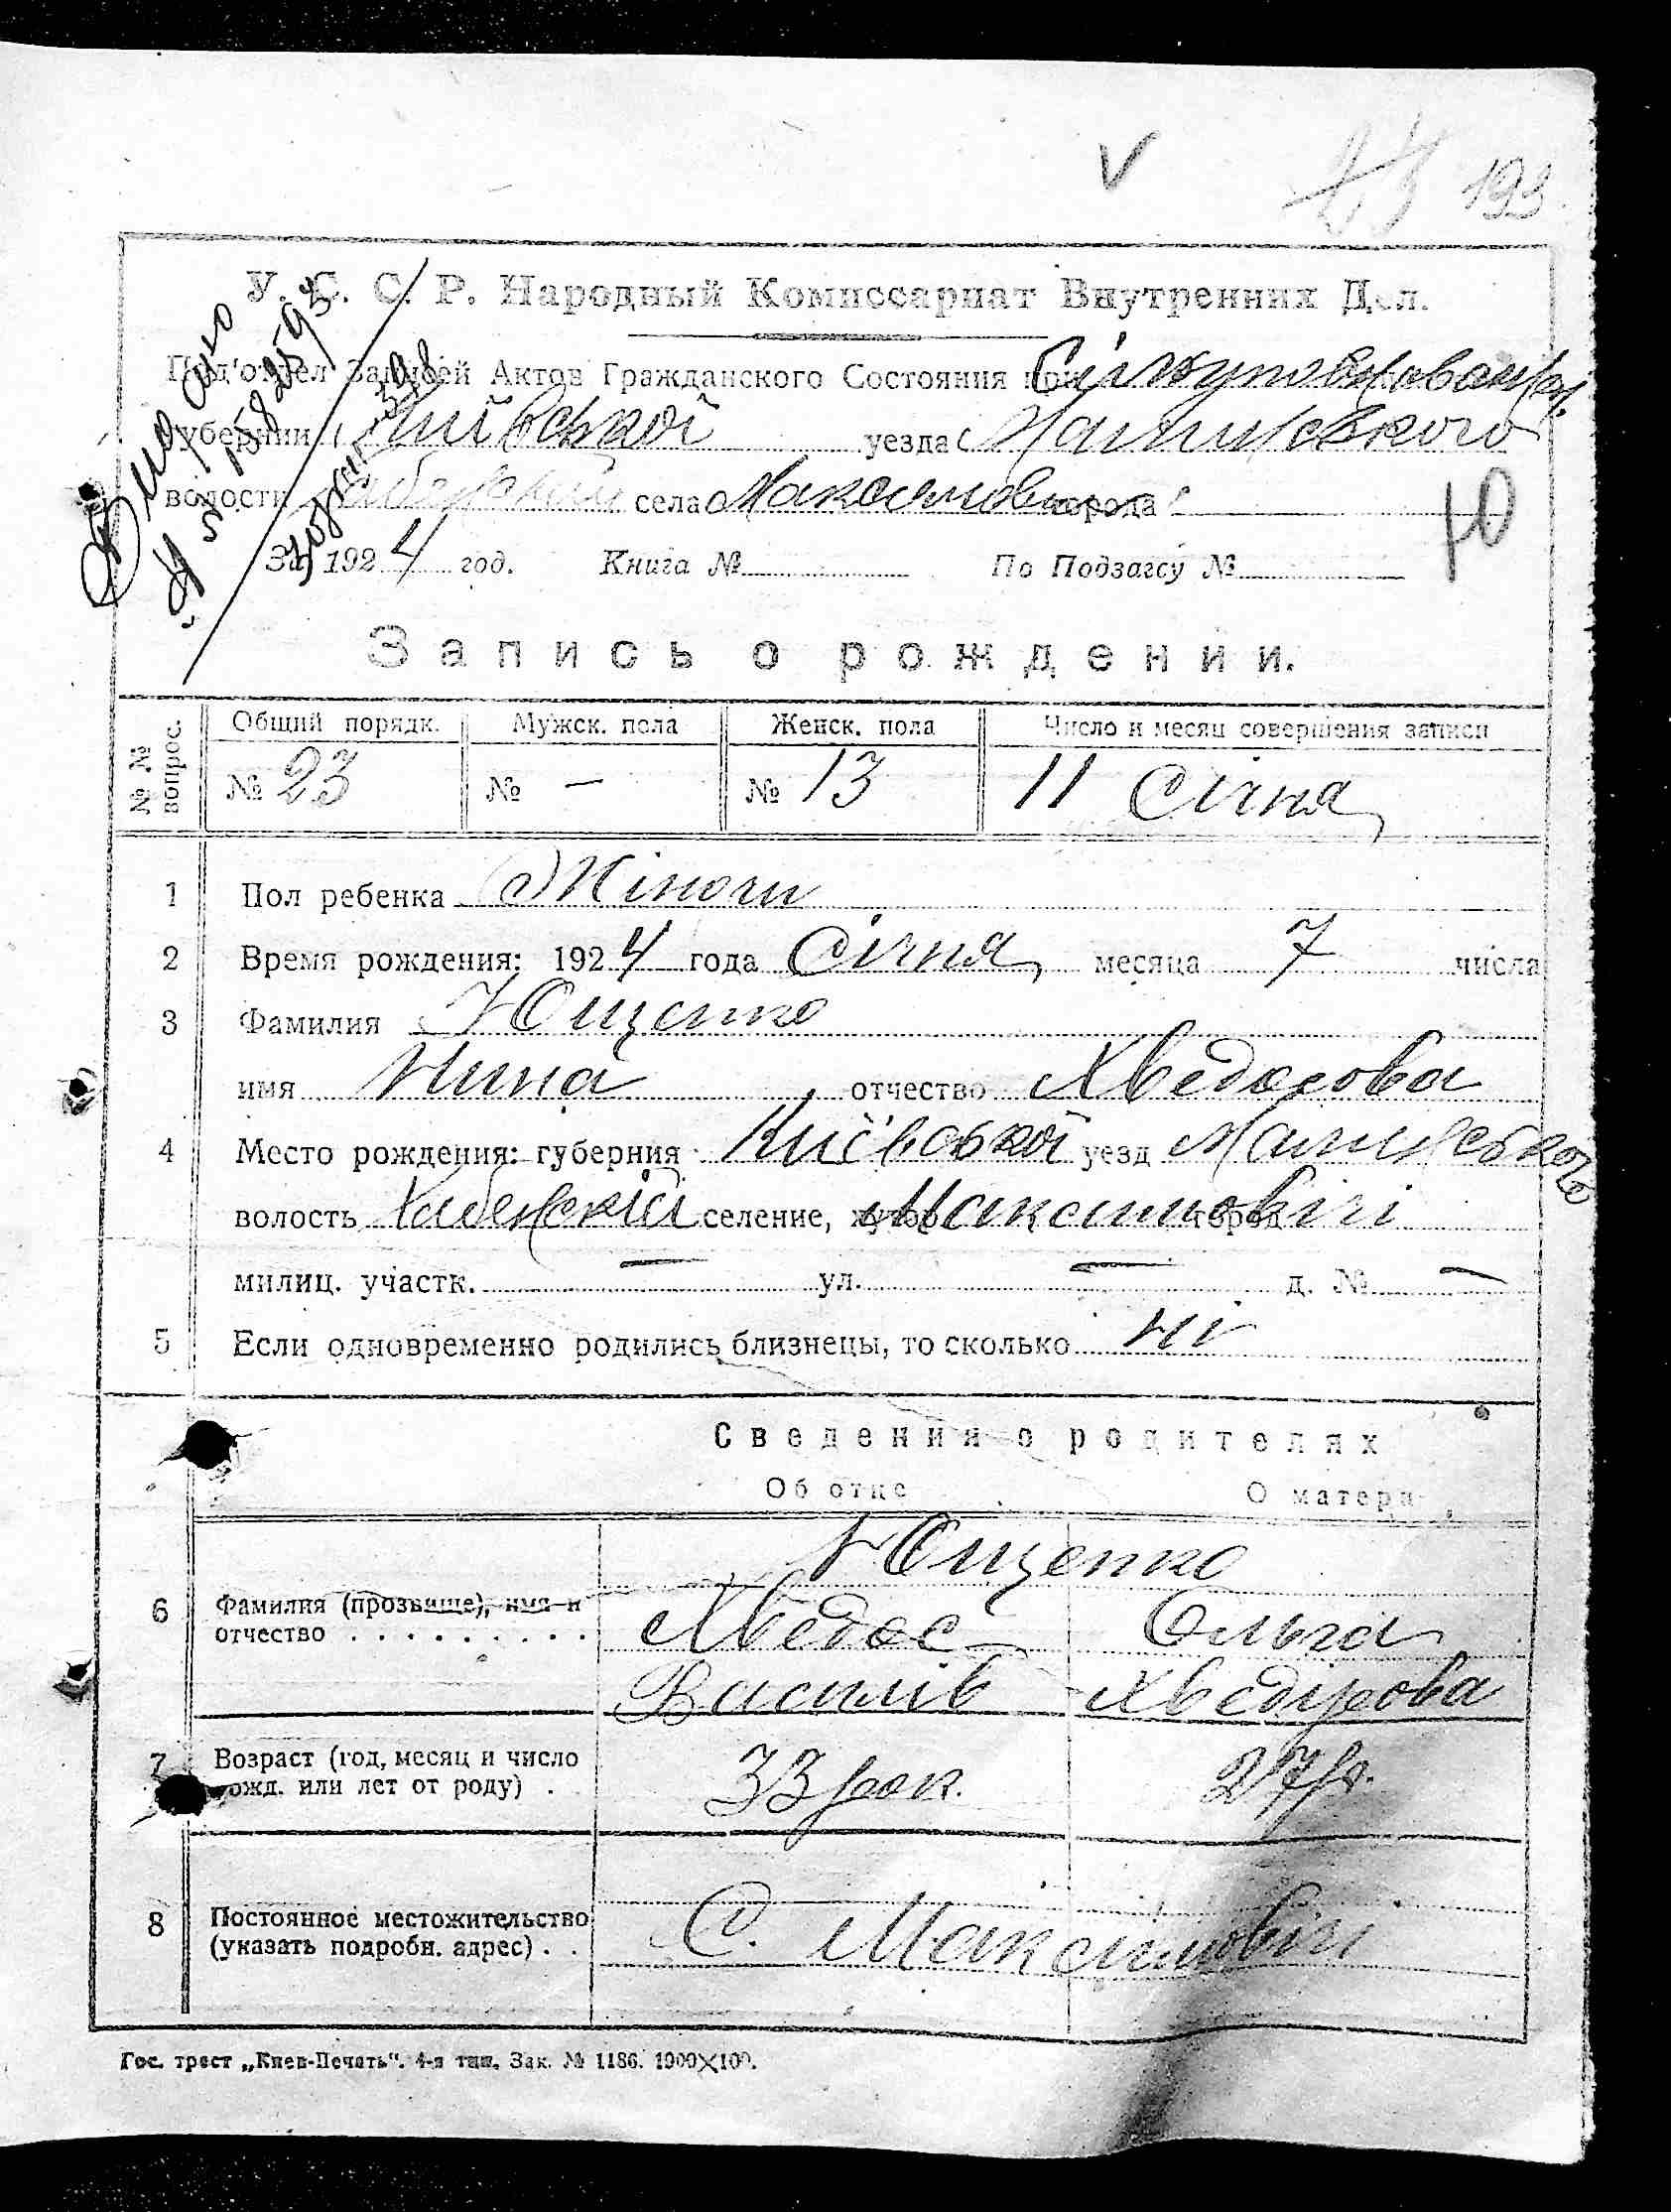 193
У. С. С. Р. Народный Комиссариат Внутренних Дел.
Под'отдел Записей Актов Гражданского Состояния при
Губернии Київської уезда
волости села Максимовичи города
За 1924 год. Книга № По Подзагсу №
10
Запись о рождении.
№ № вопрос. Общий порядк. Мужск. пола Женск. пола Число и месяц совершения записи
№ 23 № — № 13 11 Січня
1 Пол ребенка Жіночи
2 Время рождения: 1924 года Січня месяца 7 числа
3 Фамилия Ющенко
имя Нина отчество Хведосова
4 Место рождения: губерния Київської уезд
волость Хабенській селение, хутор Максимовічі город
милиц. участк. — ул. — д. № —
5 Если одновременно родились близнецы, то сколько ні
Сведения о родителях
Об отце О матери
Ющенко
6 Фамилия (прозвище), имя и
отчество . . . . . . . . . Хведос Ольга
Василів Хведірова
7 Возраст (год, месяц и число
рожд. или лет от роду) . 33 рок. 27 р.
8 Постоянное местожительство
(указать подробн. адрес) . . С. Максимовічі
Гос. трест „Киев-Печать“. 4-я тип. Зак. № 1186. 1000×100.